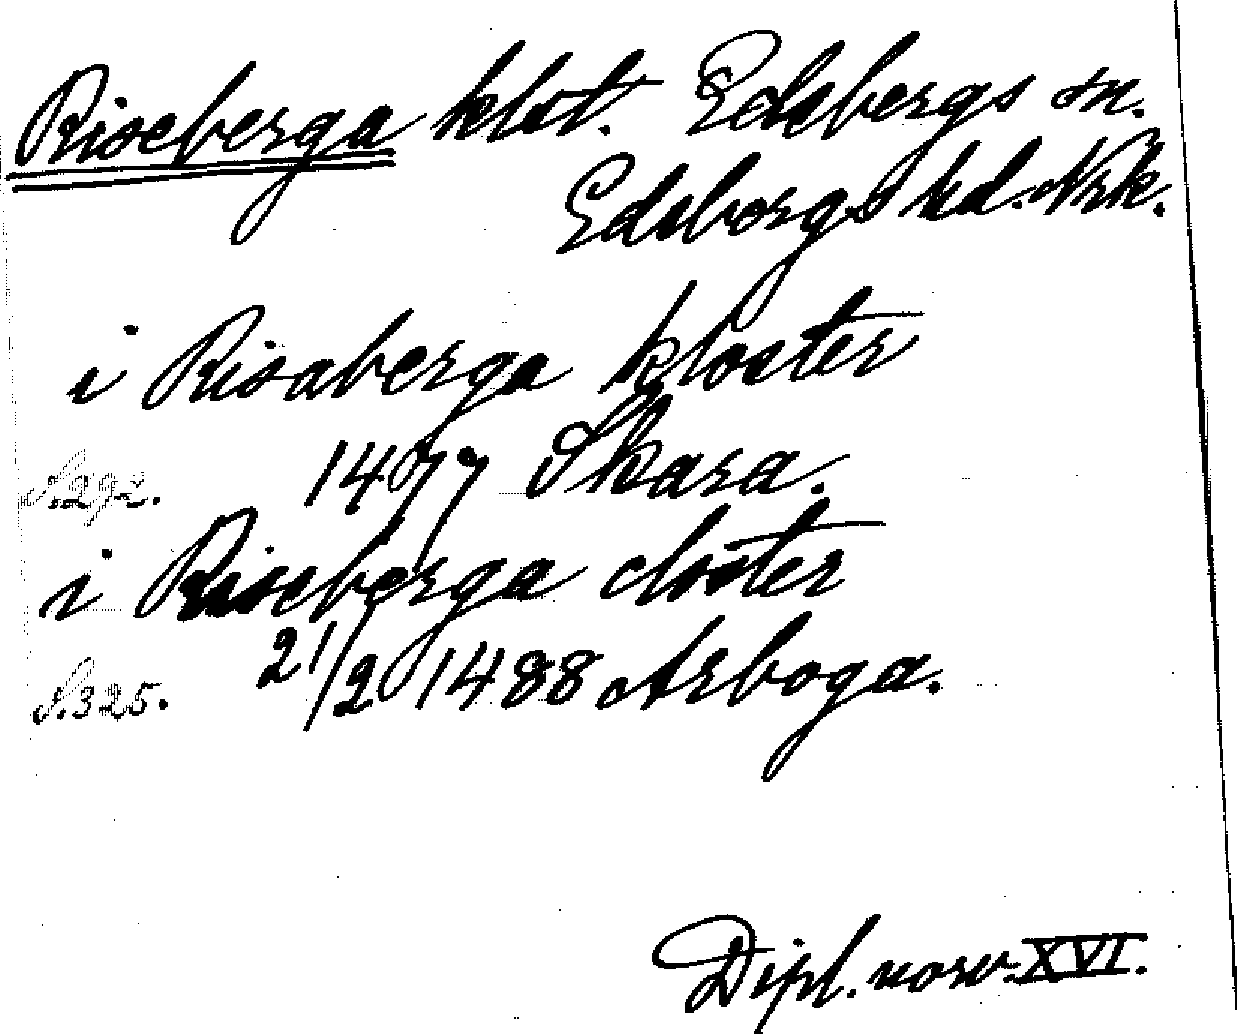 Riseberga klot. Edsbergs sn.
Edsbergs hd. Nrk.
i Risaberga kloster
S.292. 1477 Skara.
i Riseberga closter
S.325. 21/2 1488 Arboga.
Dipl. norv. XVI.